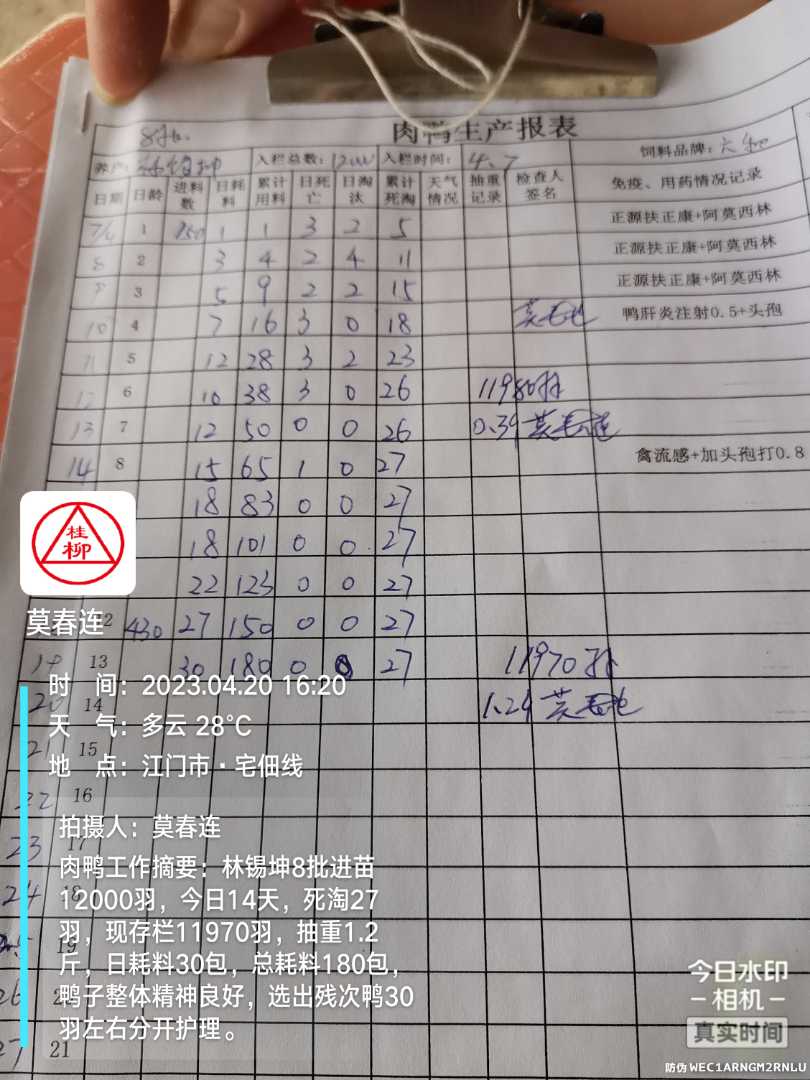 肉鸭生产报表
8批
养户: 林锡坤 入栏总数: 12000 入栏时间: 4.7 饲料品牌: 六和
日期 日龄 进料数 日耗料 累计用料 日死亡 日淘汰 累计死淘 天气情况 抽重记录 检查人签名 免疫、用药情况记录
7/4 1 150 1 1 3 2 5 正源扶正康+阿莫西林
8 2 3 4 2 4 11 正源扶正康+阿莫西林
9 3 5 9 2 2 15 正源扶正康+阿莫西林
10 4 7 16 3 0 18 莫春连 鸭肝炎注射0.5+头孢
11 5 12 28 3 2 23
12 6 10 38 3 0 26 11980羽
13 7 12 50 0 0 26 0.39 莫春连
14 8 15 65 1 0 27 禽流感+加头孢打0.8
18 83 0 0 27
18 101 0 0 27
22 123 0 0 27
2 430 27 150 0 0 27
19 13 30 180 0 0 27 11970羽
20 14 1.29 莫春连
21 15
22 16
23 17
24 18
25 19
26 2
27 21
桂柳
莫春连
时 间: 2023.04.20 16:20
天 气: 多云 28℃
地 点: 江门市·宅佃线
拍摄人: 莫春连
肉鸭工作摘要: 林锡坤8批进苗
12000羽，今日14天，死淘27
羽，现存栏11970羽，抽重1.2
斤，日耗料30包，总耗料180包，
鸭子整体精神良好，选出残次鸭30
羽左右分开护理。
今日水印
相机
真实时间
防伪 WEC1ARNGM2RNLU